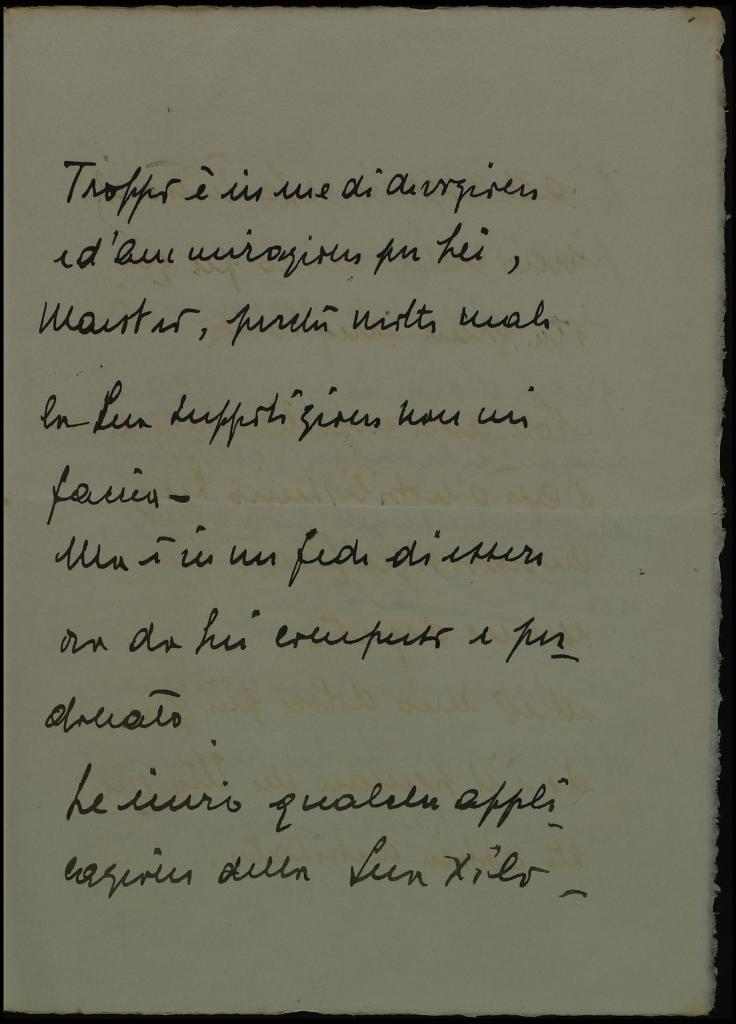 Troppo è in me di devozione
ed'ammirazione per Lei,
Maestro, perchè molto male
la Sua supposizione non mi
faccia -
Ma è in me fede di essere
ora da Lei compreso e per_
donato
Le invio qualche appli_
cazione della Sua Xilo_